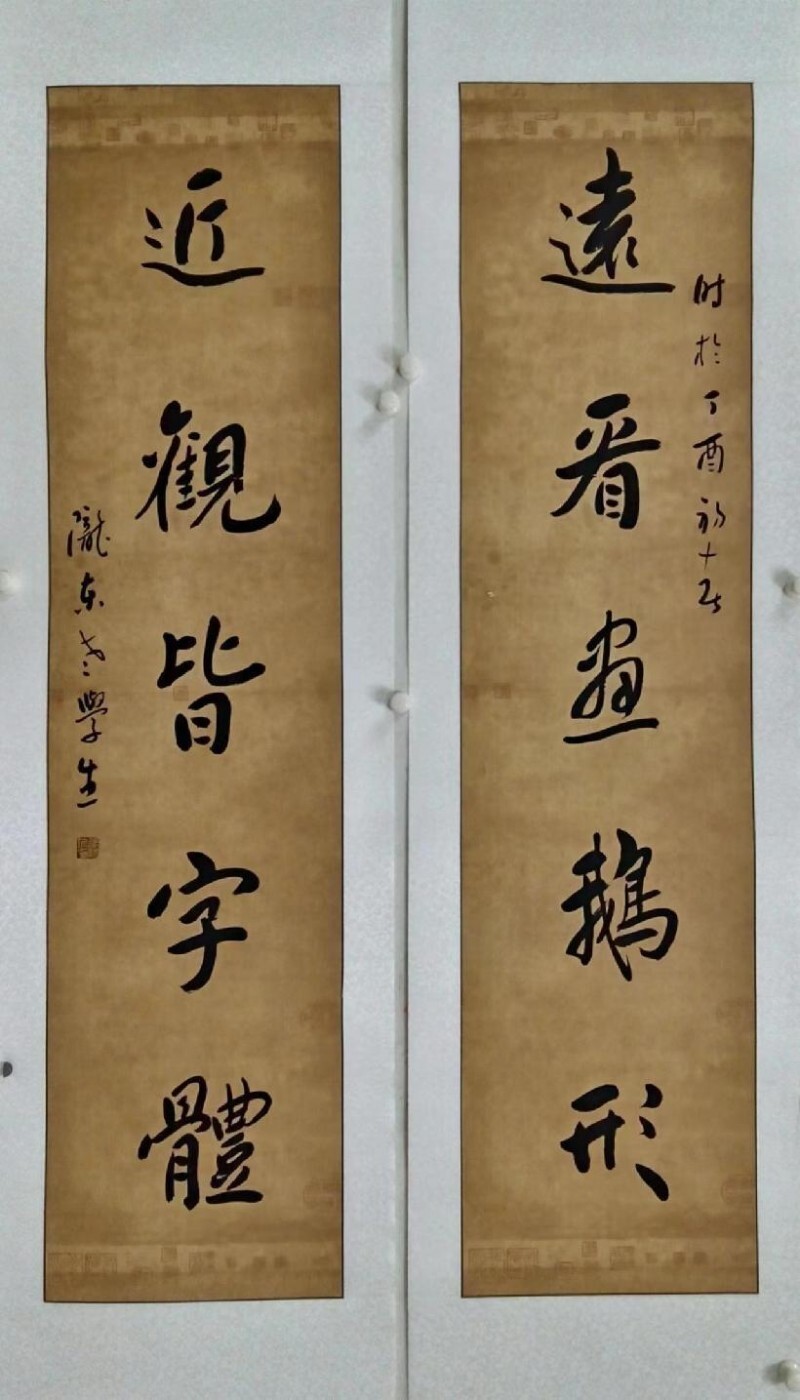 遠看畫鵝形
时於丁酉初十居
近觀皆字體
隴東老學生